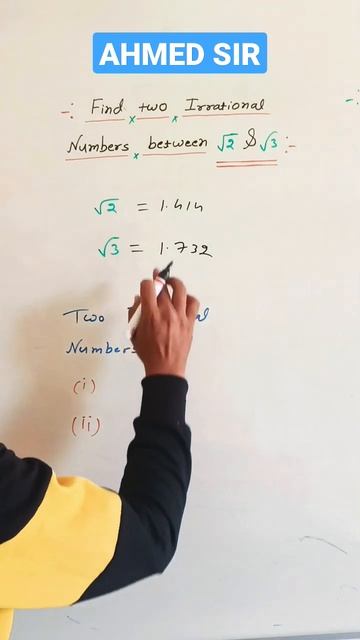 AHMED SIR
-: Find two Irrational
Numbers between √2 & √3 :-
√2 = 1.414
√3 = 1.732
Two
Numbers
(i)
(ii)